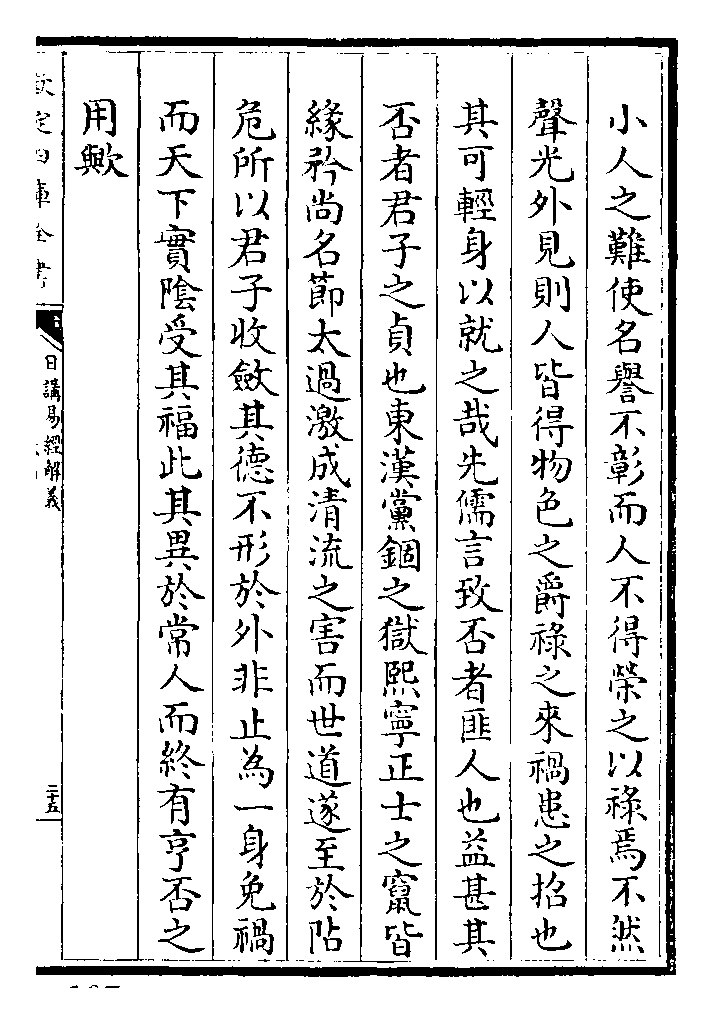 小人之難使名譽不彰而人不得榮之以祿焉不然
聲光外見則人皆得物色之爵祿之來禍患之招也
其可輕身以就之哉先儒言致否者匪人也益甚其
否者君子之貞也東漢黨錮之獄熙寧正士之竄皆
緣矜尚名節太過激成清流之害而世道遂至於阽
危所以君子收斂其德不形於外非止為一身免禍
而天下實陰受其福此其異於常人而終有亨否之
用歟
欽定四庫全書
日講易經解義
二十五